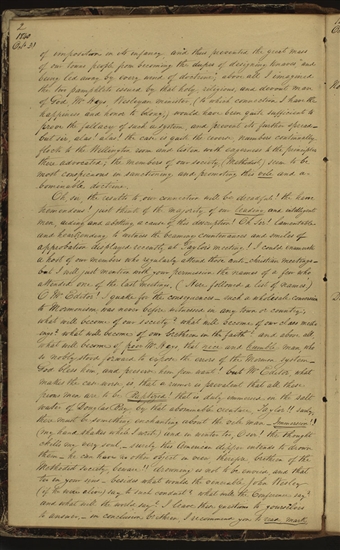 2
1840
Oct 31
of imposition in its infancy and thus prevented the great mass
of our town people from becoming the dupes of designing knaves, and
being led away by every wind of doctrine; above all I imagined
the two pamphlets issued by that holy, religious, and devout man
of God Mr Hays Wesleyan minister (to which connection I have the
happiness and honor to belong) would have been quite sufficient to
prove the fallacy of such a system, and prevent its further spread—
but sir, alas! alas! the case is quite the reverse, numbers continually
flock to the Wellington room and listen with eagerness to the principles
there advocated, the members of our society (Methodist) seem to be
most conspicuous in sanctioning and promoting this vile and a-
bominable doctrine.
Oh, sir, the results to our connection will be dreadful! the horror
tremendous! just think of the majority of our leading and intelligent
men aiding and abetting a cause of this description! Oh Sir! lamentable
and heartrending to witness the beaming countenances and smiles of
approbation displayed recently at Taylors meeting! I could enumerate
a host of our members who regularly attend those anti-christian meetings—
but I will just mention with your permission the names of a few who
attended one of the last lectures. (Here followed a list of names)
O Mr Editor! I quake for the consequences— such a wholesale conversion
to Mormonism was never before witnessed in any town or country,
what will become of our society? what will become of our class meet-
ings? what will become of our brethren in the faith? and above all
what will become of poor Mr Hays that nice and humble man who
so nobly stood forward to expose the errors of the Mormon system—
God bless him, and preserve him from want! but Mr Editor, what
makes the case worse, is that a rumor is prevalent that all these
pious men are to be Baptized! that is duly immersed in the salt
water of Douglas Bay by that abominable creature, Taylor!! surely,
there must be something enchanting about the vile man— Immersion!!
(my hand shakes while I write) and in winter too, Oh! the thought
chills my very soul — surely this American dipper intends to drown
them— he can have no other object in view therefore, brethren of the
Methodist society, beware!! drowning is not to be envied, and that
too in your sins— besides what would the venerable John Wesley
(if he were alive) say to such conduct? what will the Conference say?
and what will the world say? I leave these questions to yourselves
to answer,— in conclusion, brethren, I recommend you to read, mark,